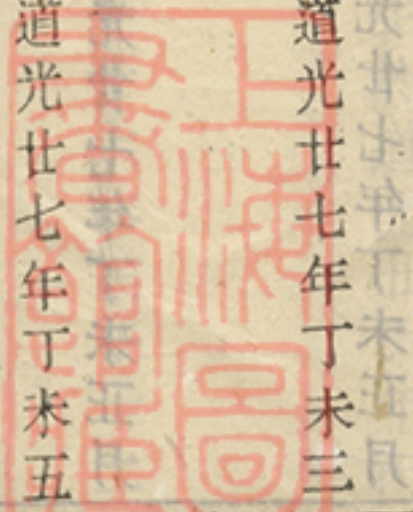 道光廿七年丁未三
道光廿七年丁未五
上海圖書館藏